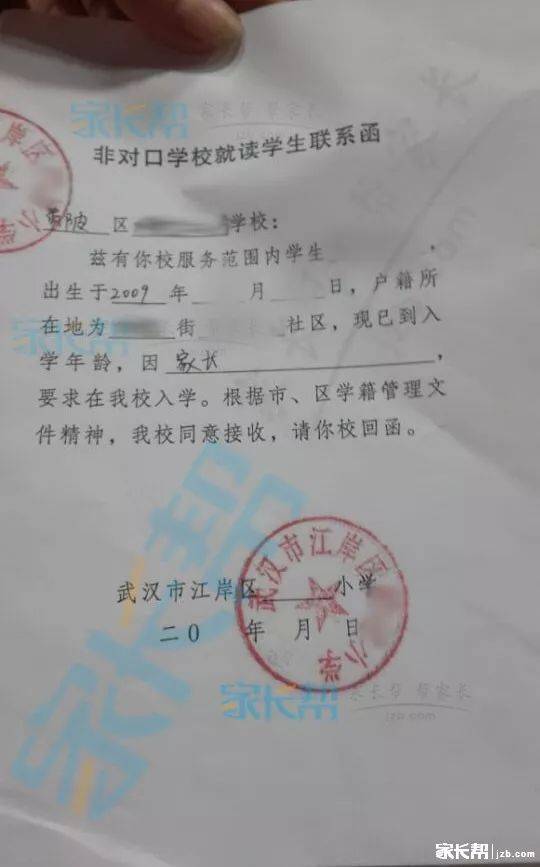 家长帮
家长帮 帮家长
非对口学校就读学生联系函
岸区
小学
黄陂 区 学校：
兹有你校服务范围内学生 ，
出生于2009 年 月 日，户籍所
在地为 街 社区，现已到入
学年龄，因 家长 ，
要求在我校入学。根据市、区学籍管理文
件精神，我校同意接收，请你校回函。
家长帮
武汉市江岸区
小学
武汉市江岸区 小学
二0 年 月 日
家长帮
家长帮 帮家长
jzb.com
家长帮 jzb.com